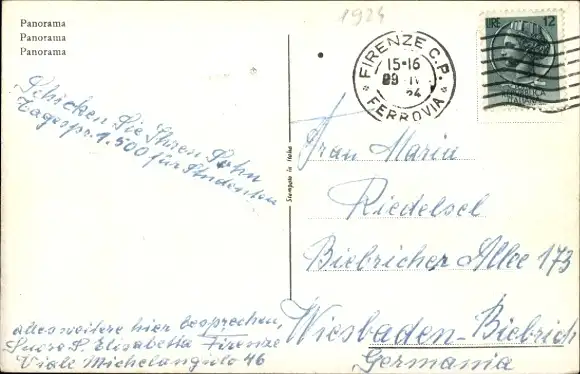 Panorama
Panorama
Panorama
1924
FIRENZE C.P.
15-16
FERROVIA
LIRE 12
Schicken Sie Ihren Sohn
Tagespr. 1.500 für Studenten
alles weitere hier besprechen,
Suore S. Elisabetta Firenze
Viale Michelangiolo 46
Stampato in Italia
Frau Maria
Riedelsel
Biebricher Allee 173
Wiesbaden-Biebrich
Germania